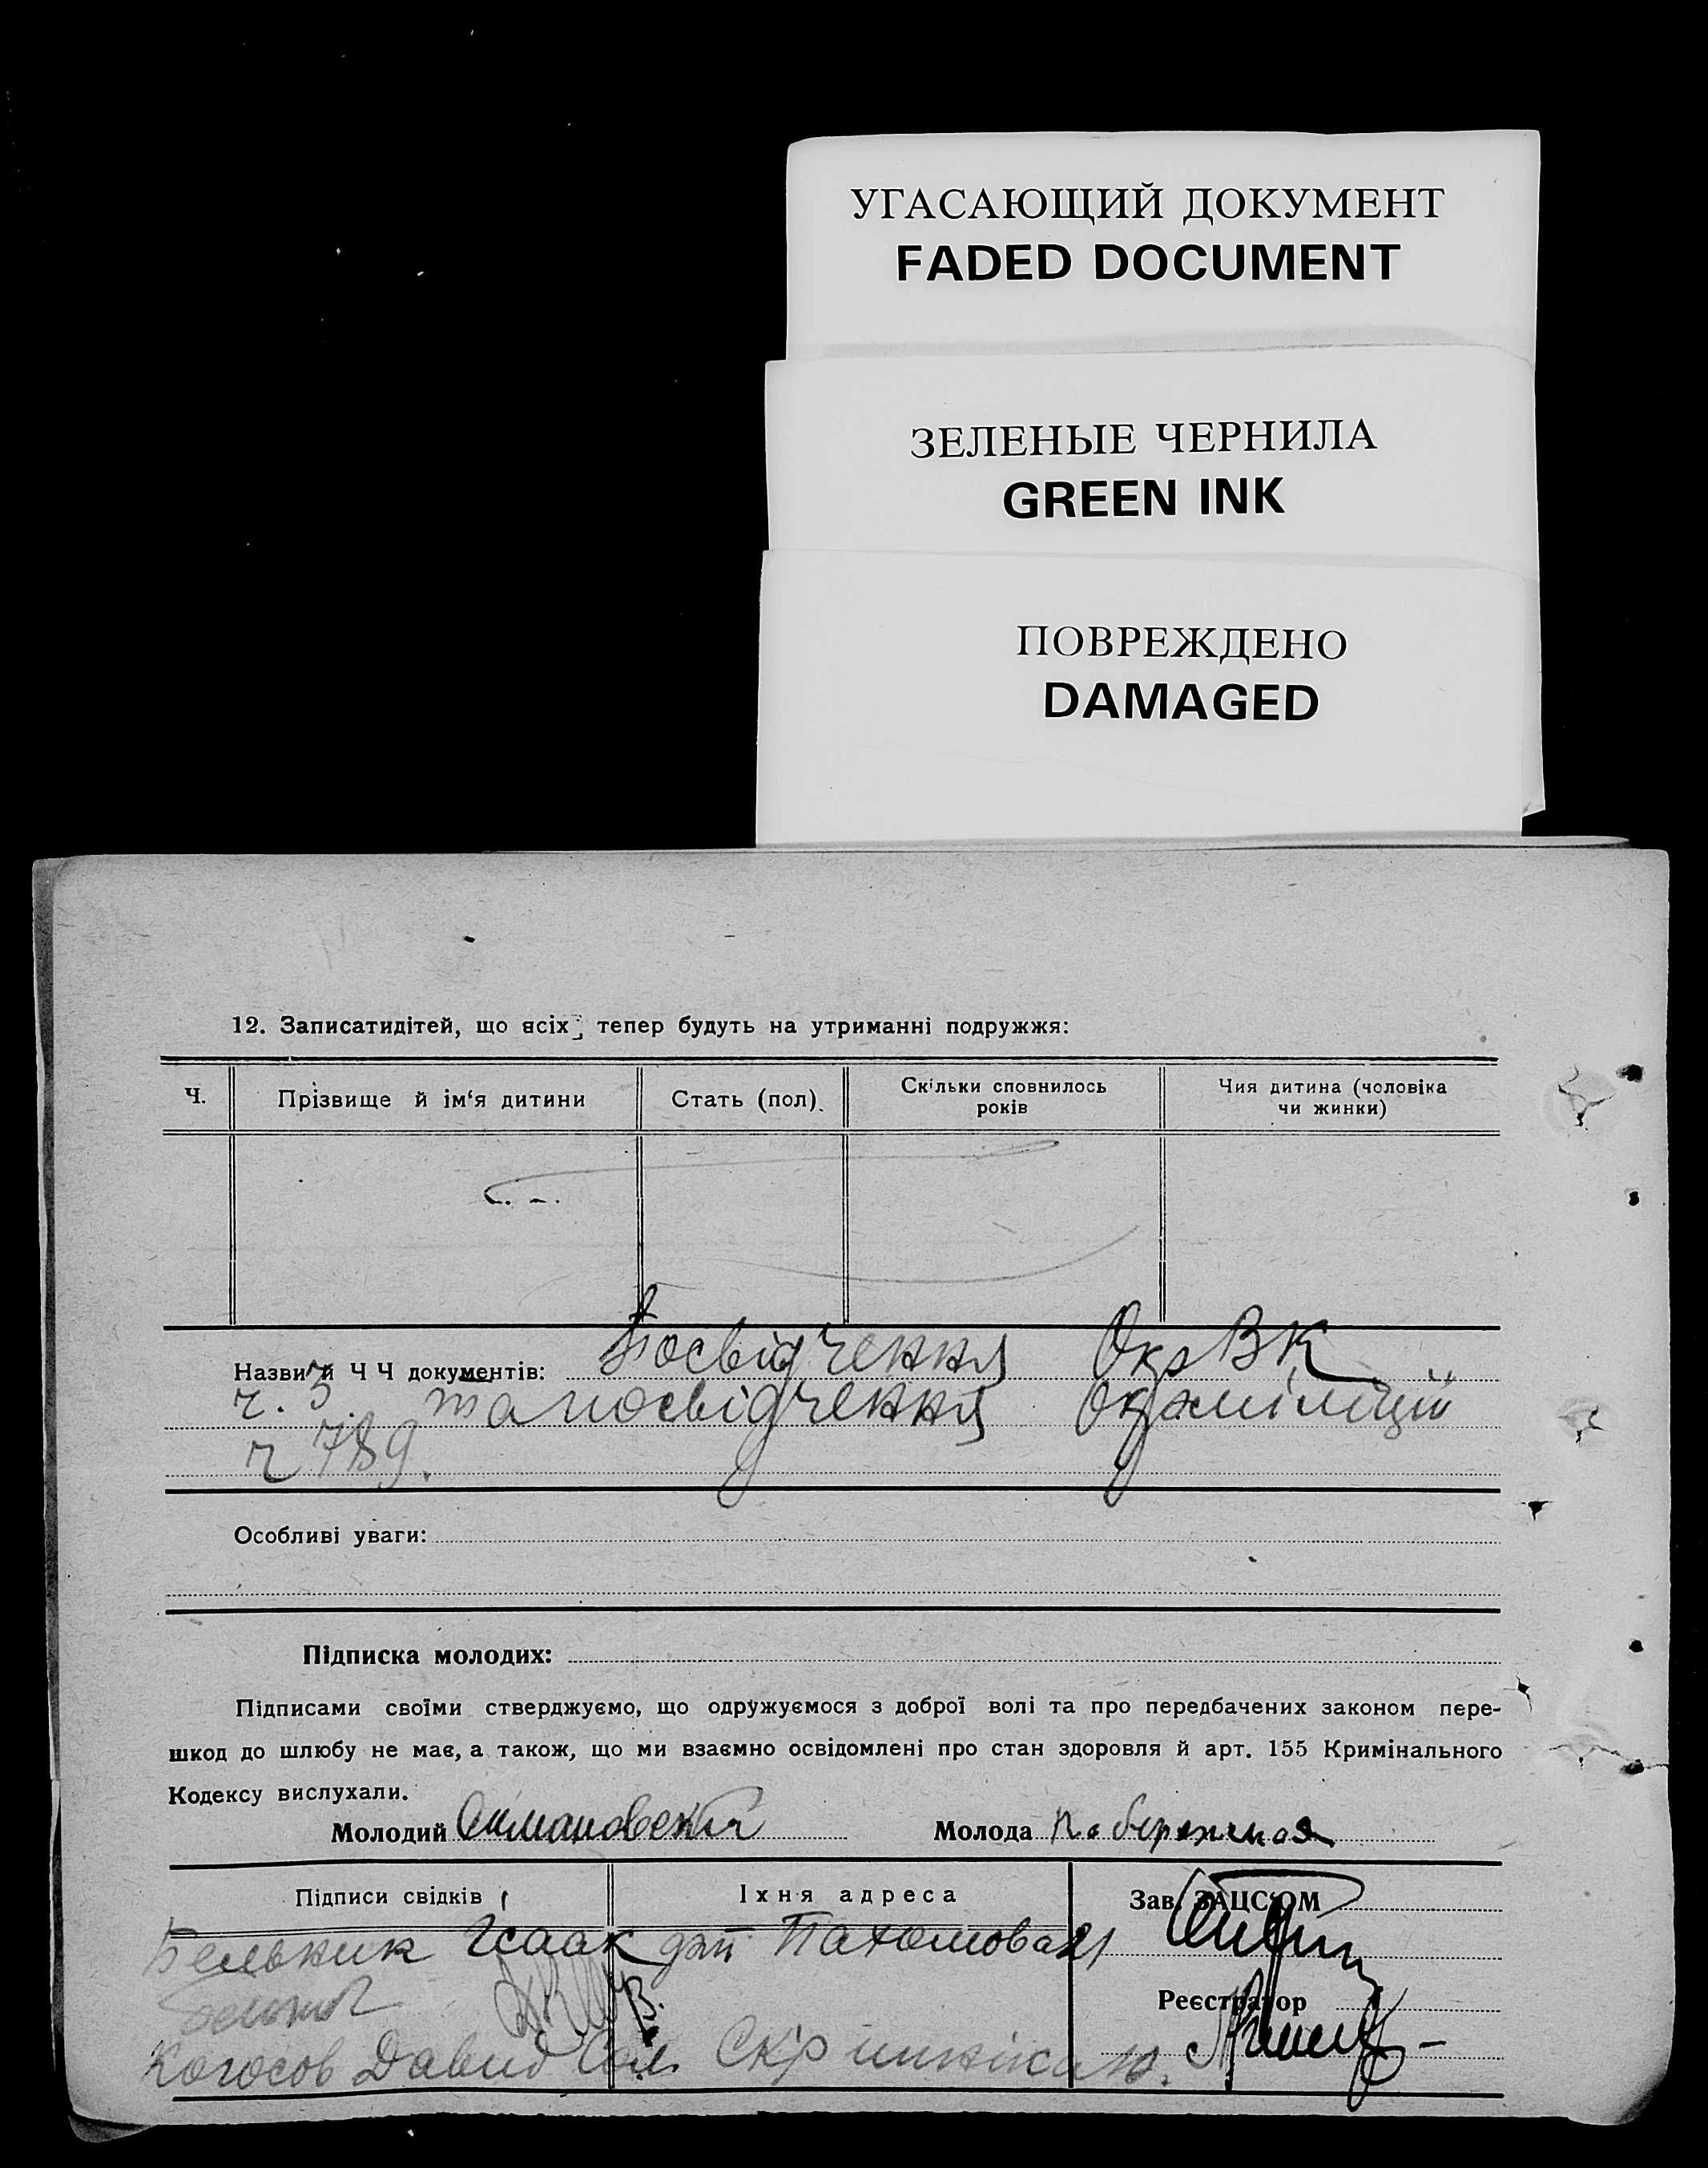 УГАСАЮЩИЙ ДОКУМЕНТ
FADED DOCUMENT
ЗЕЛЕНЫЕ ЧЕРНИЛА
GREEN INK
ПОВРЕЖДЕНО
DAMAGED
12. Записатидітей, що всіх тепер будуть на утриманні подружжя:
Ч. Прізвище й ім‘я дитини Стать (пол). Скільки сповнилось років Чия дитина (чоловіка чи жинки)
Назви й Ч Ч документів: Посвідчення ОкрВК
ч. 3. та посвідчення Окрміліції
ч 789.
Особливі уваги:
Підписка молодих:
Підписами своїми стверджуємо, що одружуємося з доброї волі та про передбачених законом пере-
шкод до шлюбу не має, а також, що ми взаємно освідомлені про стан здоровля й арт. 155 Кримінального
Кодексу вислухали.
Молодий Молода
Підписи свідків Їхня адреса Зав. ЗАЦС‘ОМ
Ісаак Пахомова 21
Реєстратор
Давид